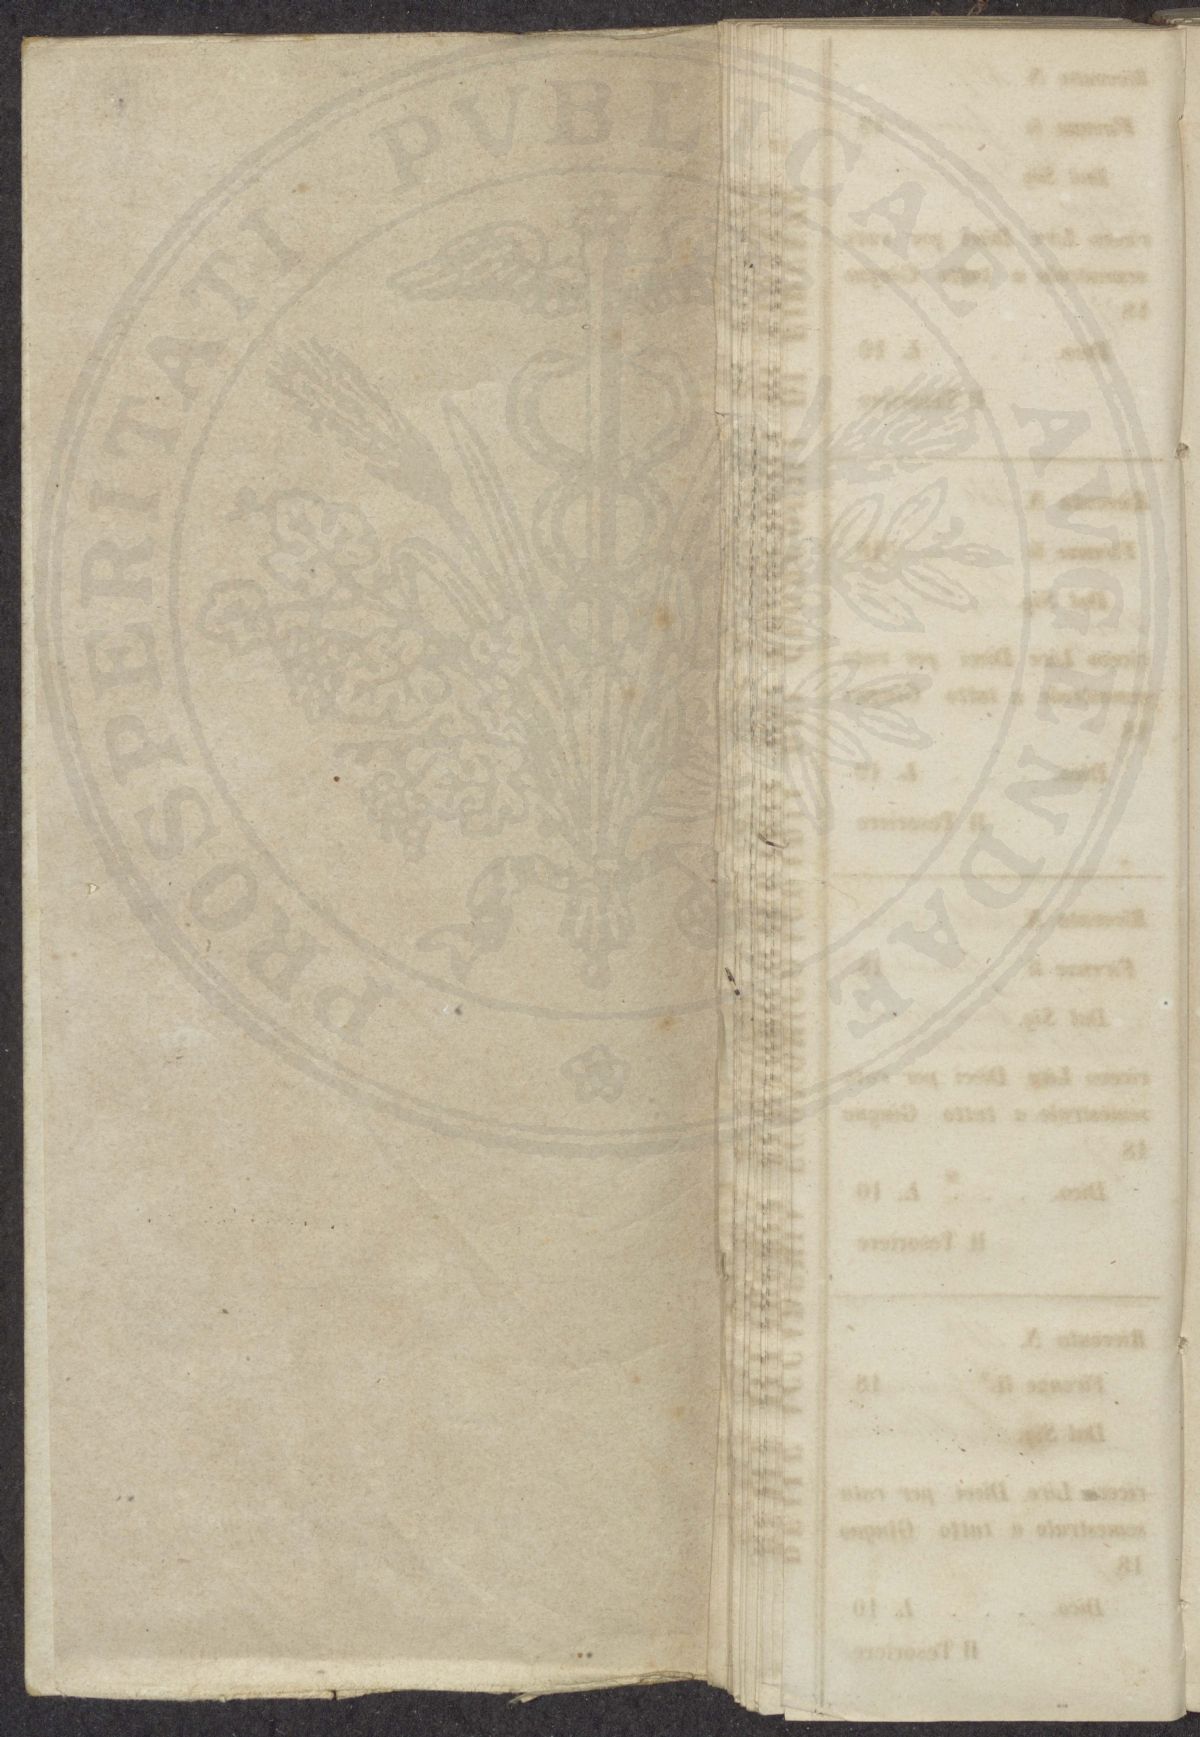 PROSPERITATI PUBLICAE AVGENDAE
Riscontro N.
Firenze li 18
Dal Sig.
riceve Lire Dieci per rata
semestrale a tutto Giugno
18
Dico. . . . L. 10
Il Tesoriere
Riscontro N.
Firenze li 18
Dal Sig.
riceve Lire Dieci per rata
semestrale a tutto Giugno
18
Dico. . . . L. 10
Il Tesoriere
Riscontro N.
Firenze li 18
Dal Sig.
riceve Lire Dieci per rata
semestrale a tutto Giugno
18
Dico. . . . L. 10
Il Tesoriere
Riscontro N.
Firenze li 18
Dal Sig.
riceve Lire Dieci per rata
semestrale a tutto Giugno
18
Dico. . . . L. 10
Il Tesoriere